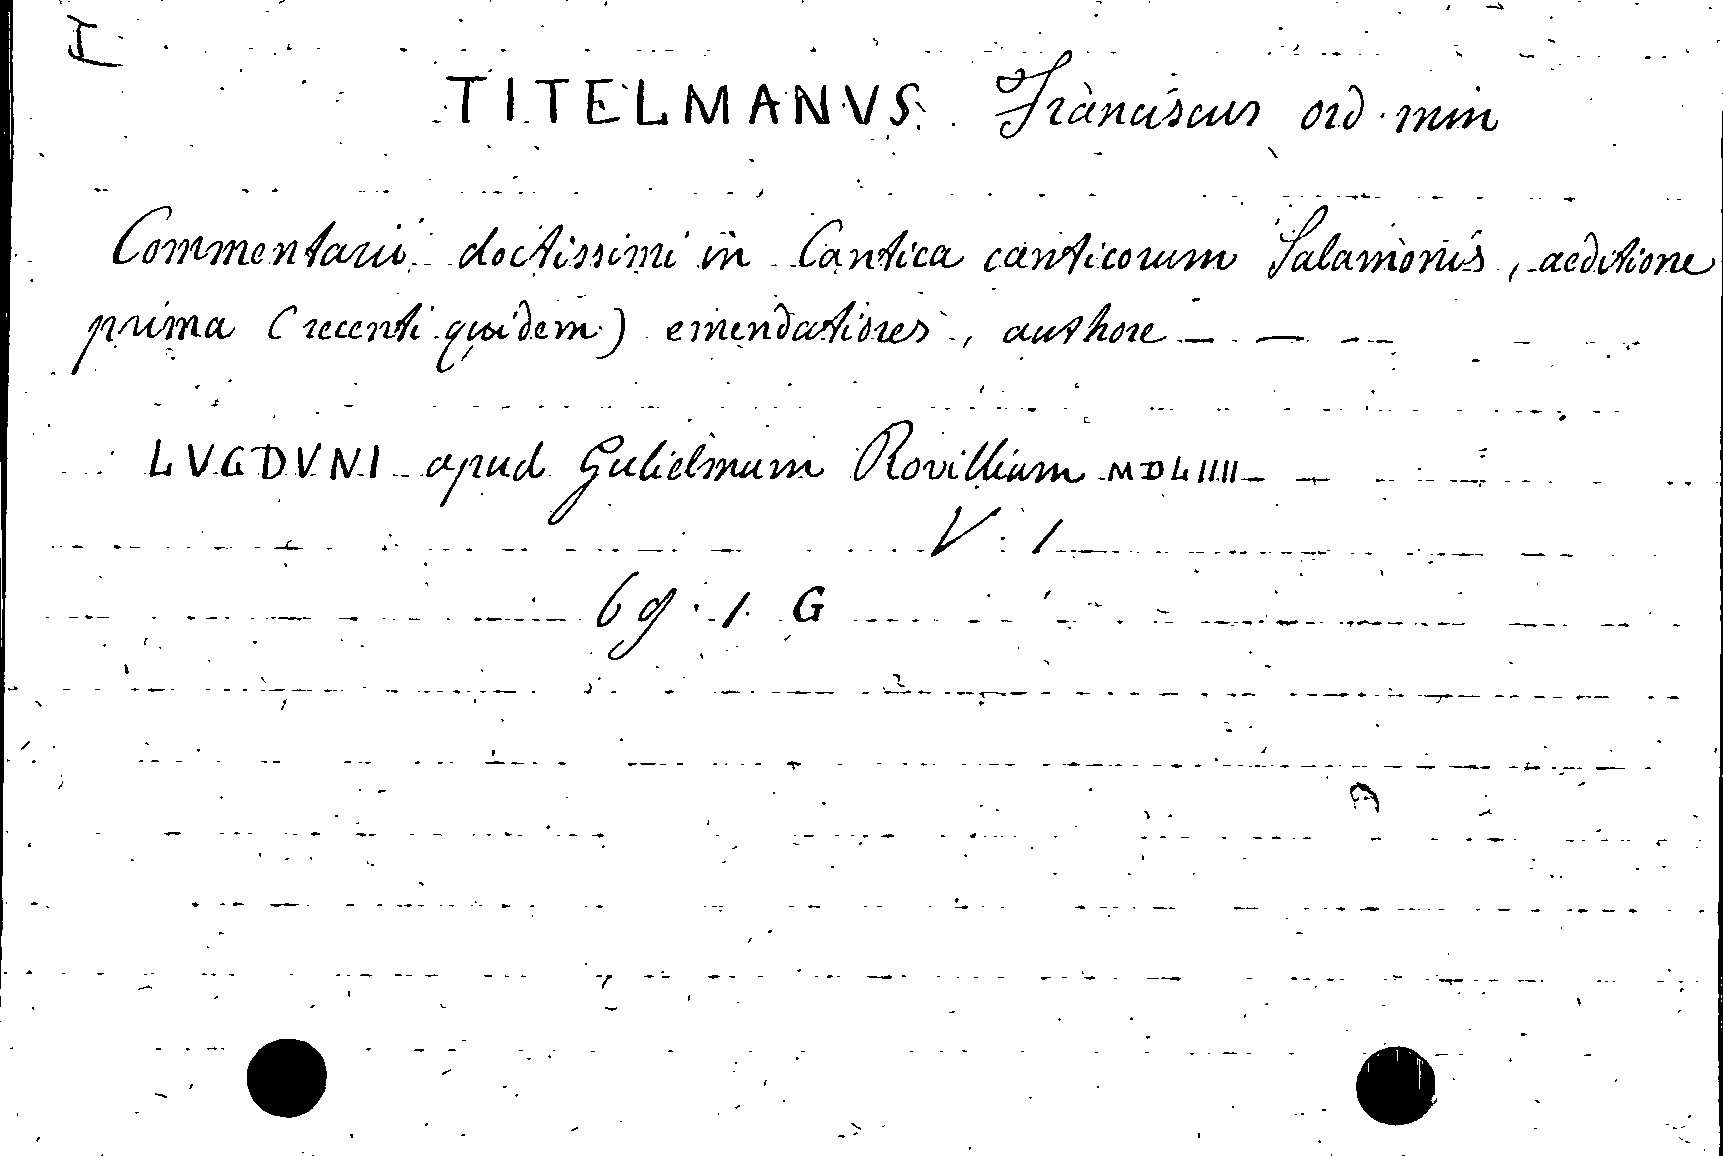 I
TITELMANVS Franciscus ord. min
Commentarii doctissimi in Cantica canticorum Salamonis, aeditione
prima (recenti quidem) emendatiores, authore —
LVGDVNI apud Gulielmum Rovillium MDLIIII
V. 1
69. 1. G